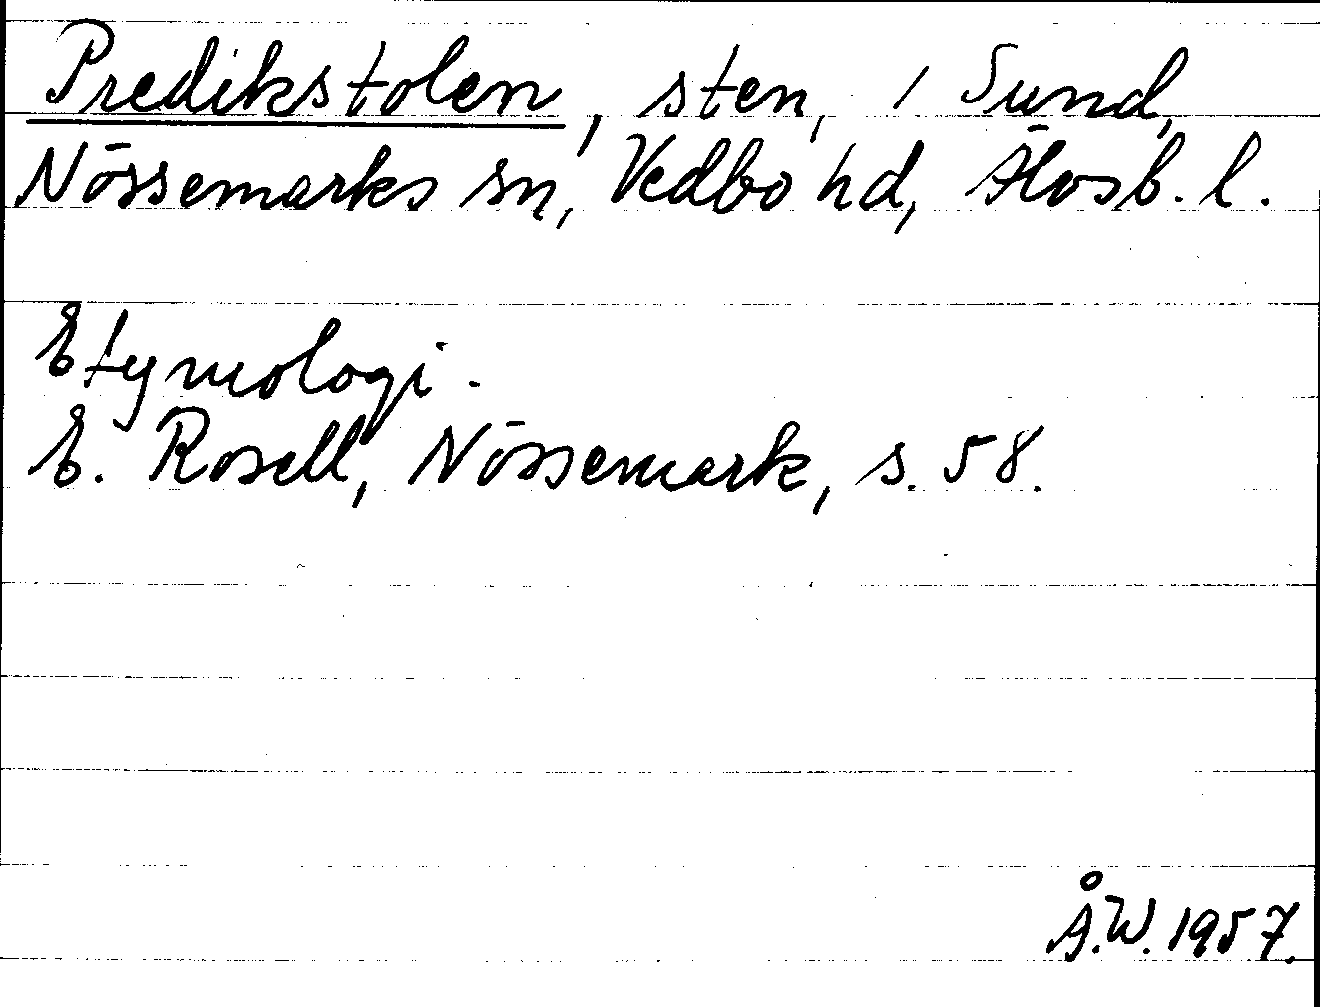 Predikstolen, sten, i Sund,
Nössemarks sn, Vedbo hd, Älvsb. l.
Etymologi.
E. Rosell, Nössemark, s. 58.
Å.W. 1957.